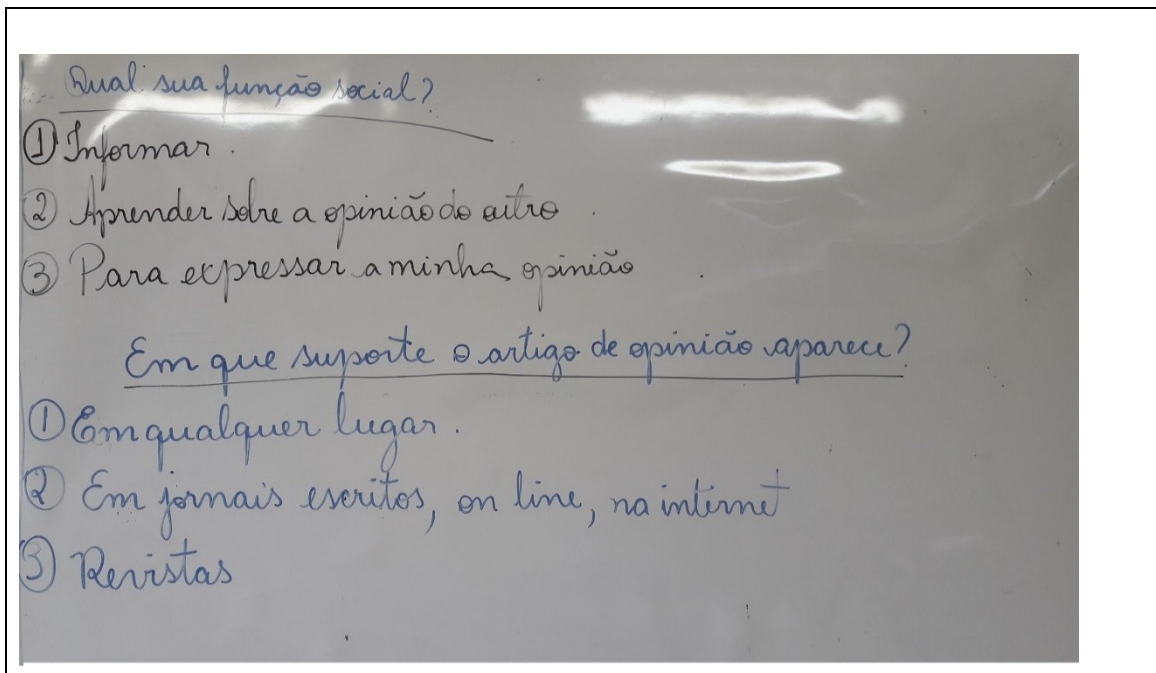 Qual sua função social?
① Informar.
② Aprender sobre a opinião do outro.
③ Para expressar a minha opinião
Em que suporte o artigo de opinião aparece?
① Em qualquer lugar.
② Em jornais escritos, on line, na internet
③ Revistas